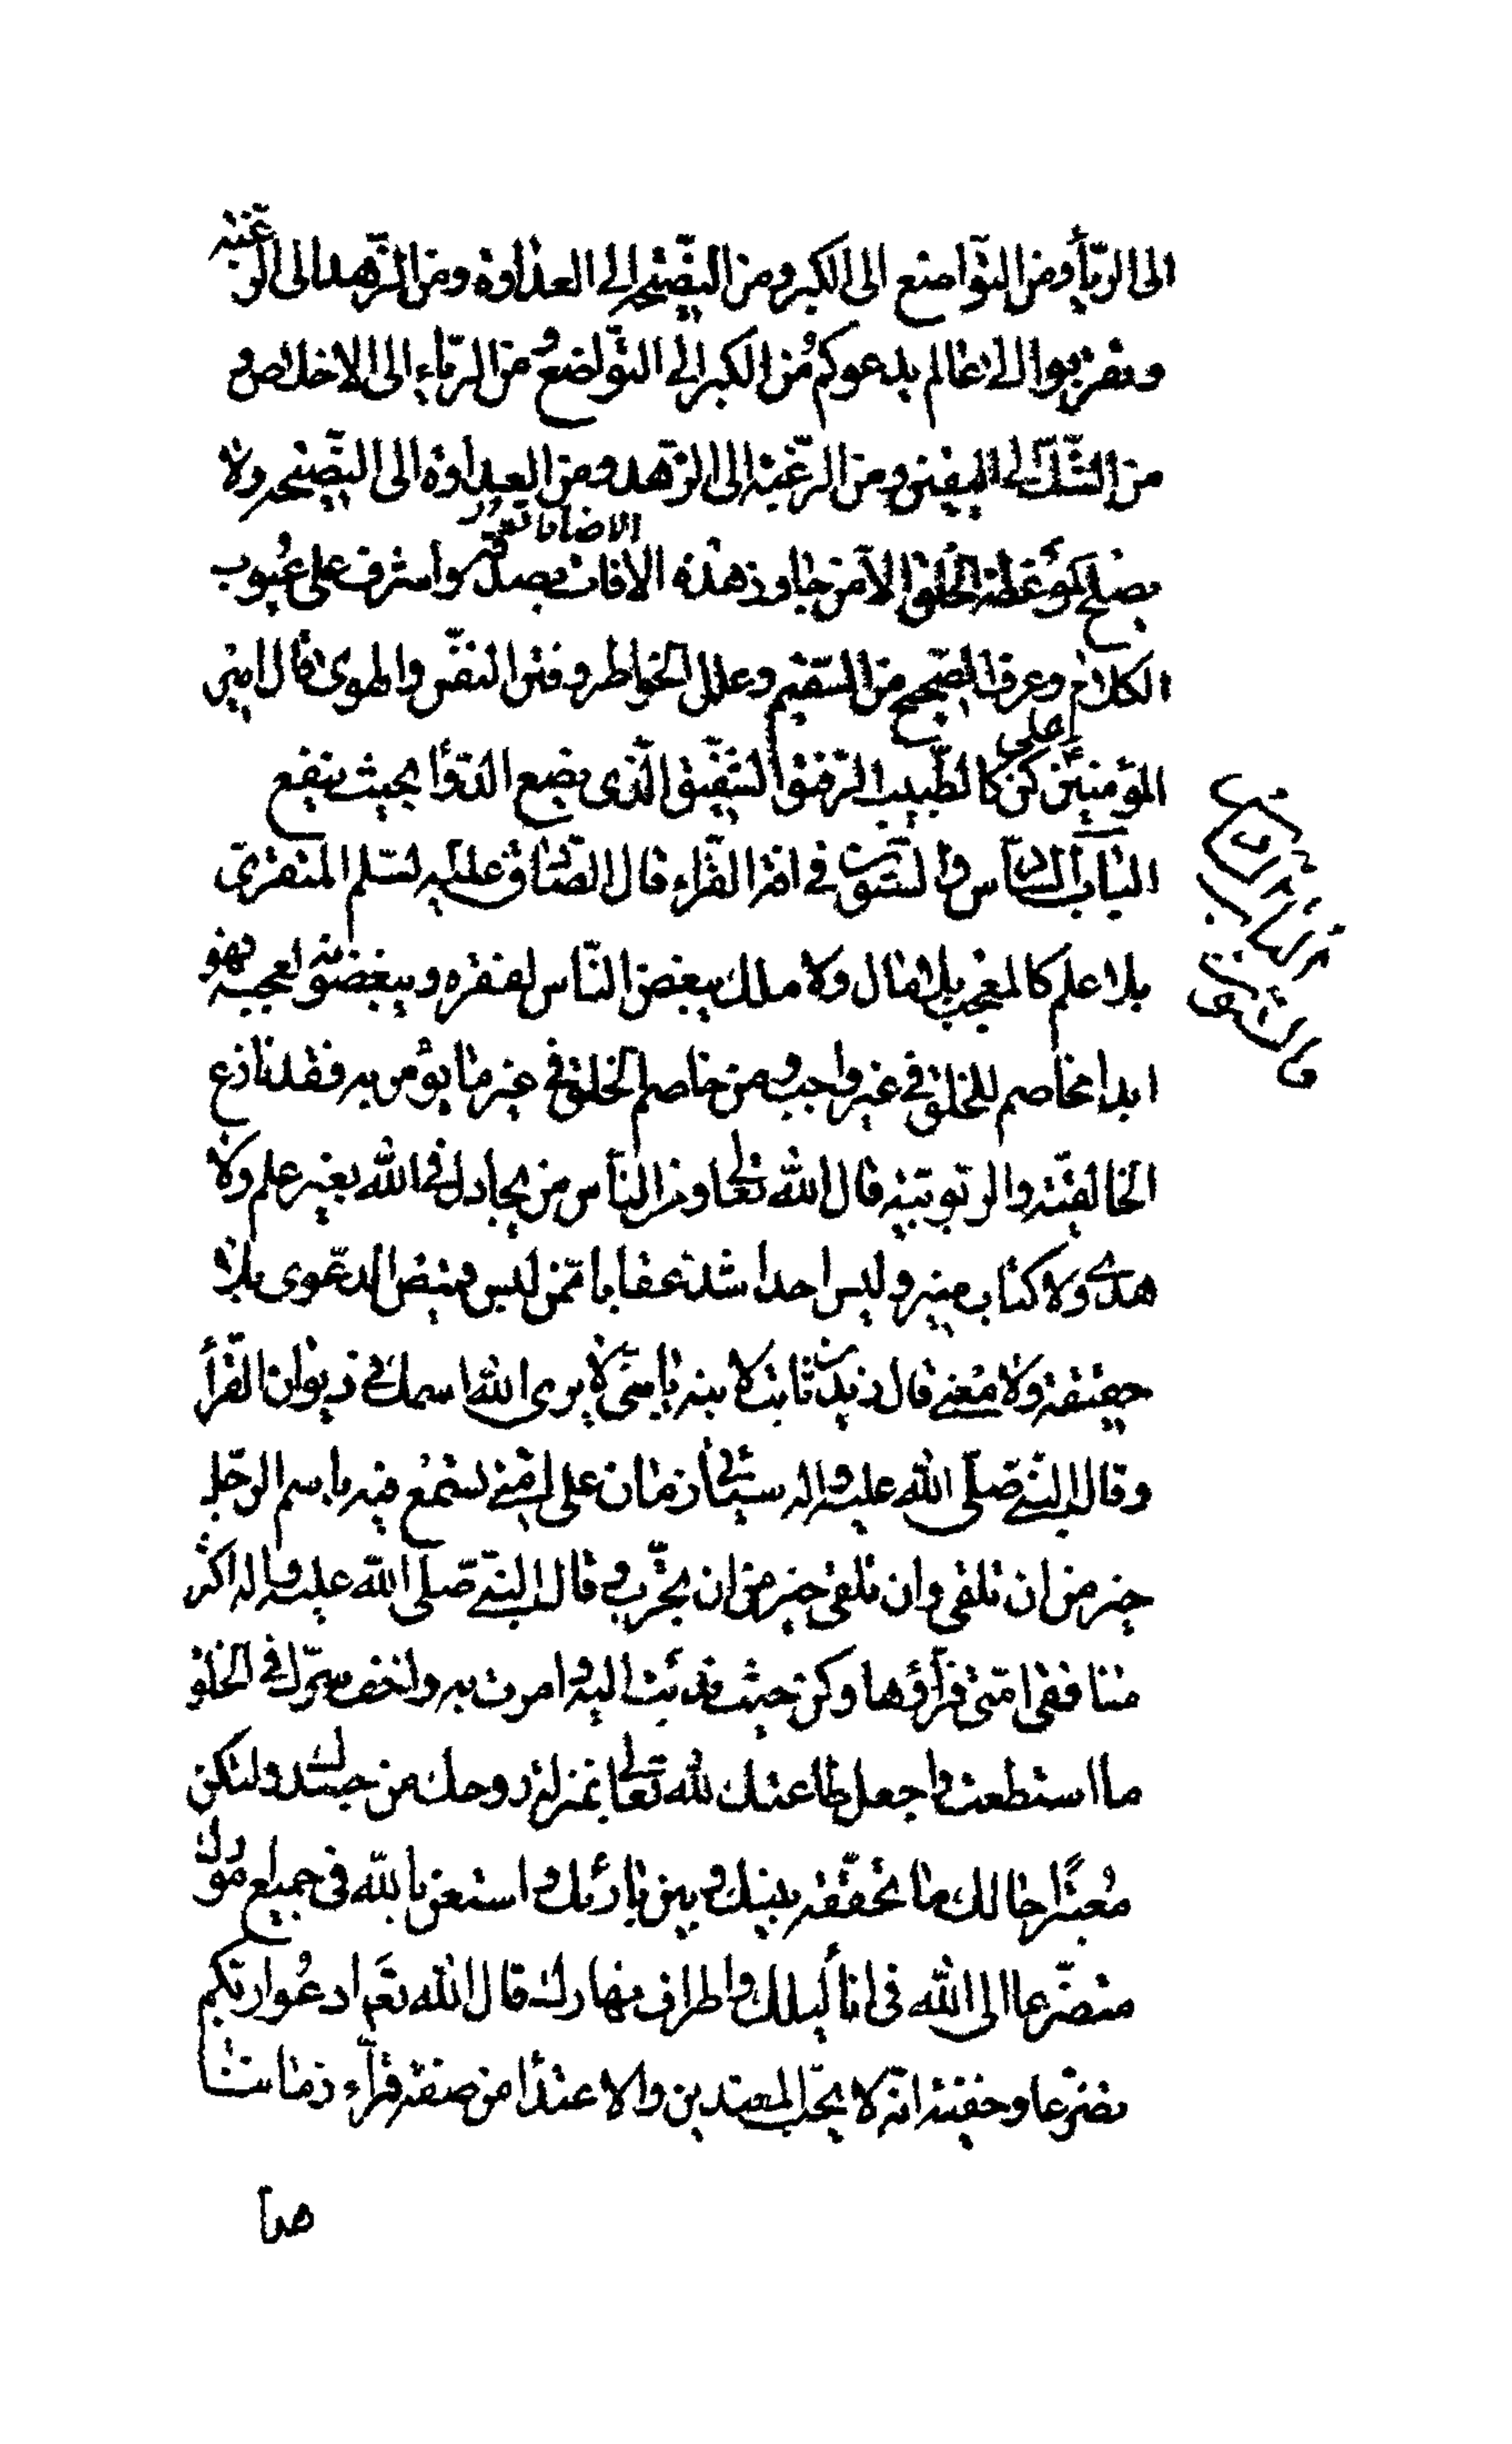 الى الريّاء ومن التواضع الى الكبر ومن النصيحة الى العداوة ومن الزّهد الى الرغبة
وتقربوا الى عالم يدعوكم من الكبر الى التواضع ومن الريّاء الى الاخلاص و
من الشّك الى اليقين ومن الرّغبة الى الزّهد ومن العداوة الى النّصيحة ولا
يصلح لموعظة الخلق الاّ من جاوز هذه الافات بصدقه واشرف على عيوب
الكلام وعرف الصّحيح من السّقيم وعلل الخواطر وفتن النفس والهوى قال امير
المؤمنين على كن كالطّبيب الرّفيق الشّفيق الّذى يضع الدّواء بحيث ينفع
الباب السادس والستون في افة القرّاء قال الصّادق عليه لسّلم المتقرّى
بلا علم كالمعجب بلا مال ولا ملك يبغض النّاس لفقره ويبغضونه لعجبه فهو
ابدا مخاصم للخلق في غير واجب ومن خاصم الخلق في غير ما يؤمر به فقد نازع
الخالقيّة والربوبيّة قال الله تعالى ومن النّاس من يجادل في الله بغير علم ولا
هدى ولا كتاب منير وليس احدا شدّ عقابا ممّن لبس قميض الدعوى بلا
حقيقة ولا معنى قال زيد بن ثابت لابنه يا بنىّ لا يرى الله اسمك في ديوان القرّاء
وقال النبي صلّى الله عليه واله سياتى زمان على امّتى تسمع فيه باسم الرّجل
خير من ان تلقى وان تلقى خير من ان تجرّب وقال النبي صلّى الله عليه واله اكثر
منافقى امّتى قرّاؤها وكن حيث ندبت اليه وامرت به واخف سرّك في الخلق
ما استطعت واجعل طاعتك لله تعالى بمنزلة روحك من جسدك ولتكن
معتبرا حالك ما تحققه بينك وبين بارئك واستعن بالله في جميع امورك
متضرّعا الى الله في اناء ليلك واطراف نهارك قال الله تعم ادعوا ربّكم
تضرّعا وخفية انّه لا يحبّ المعتدين والاعتداء من صفة قرّاء زماننا
هذا